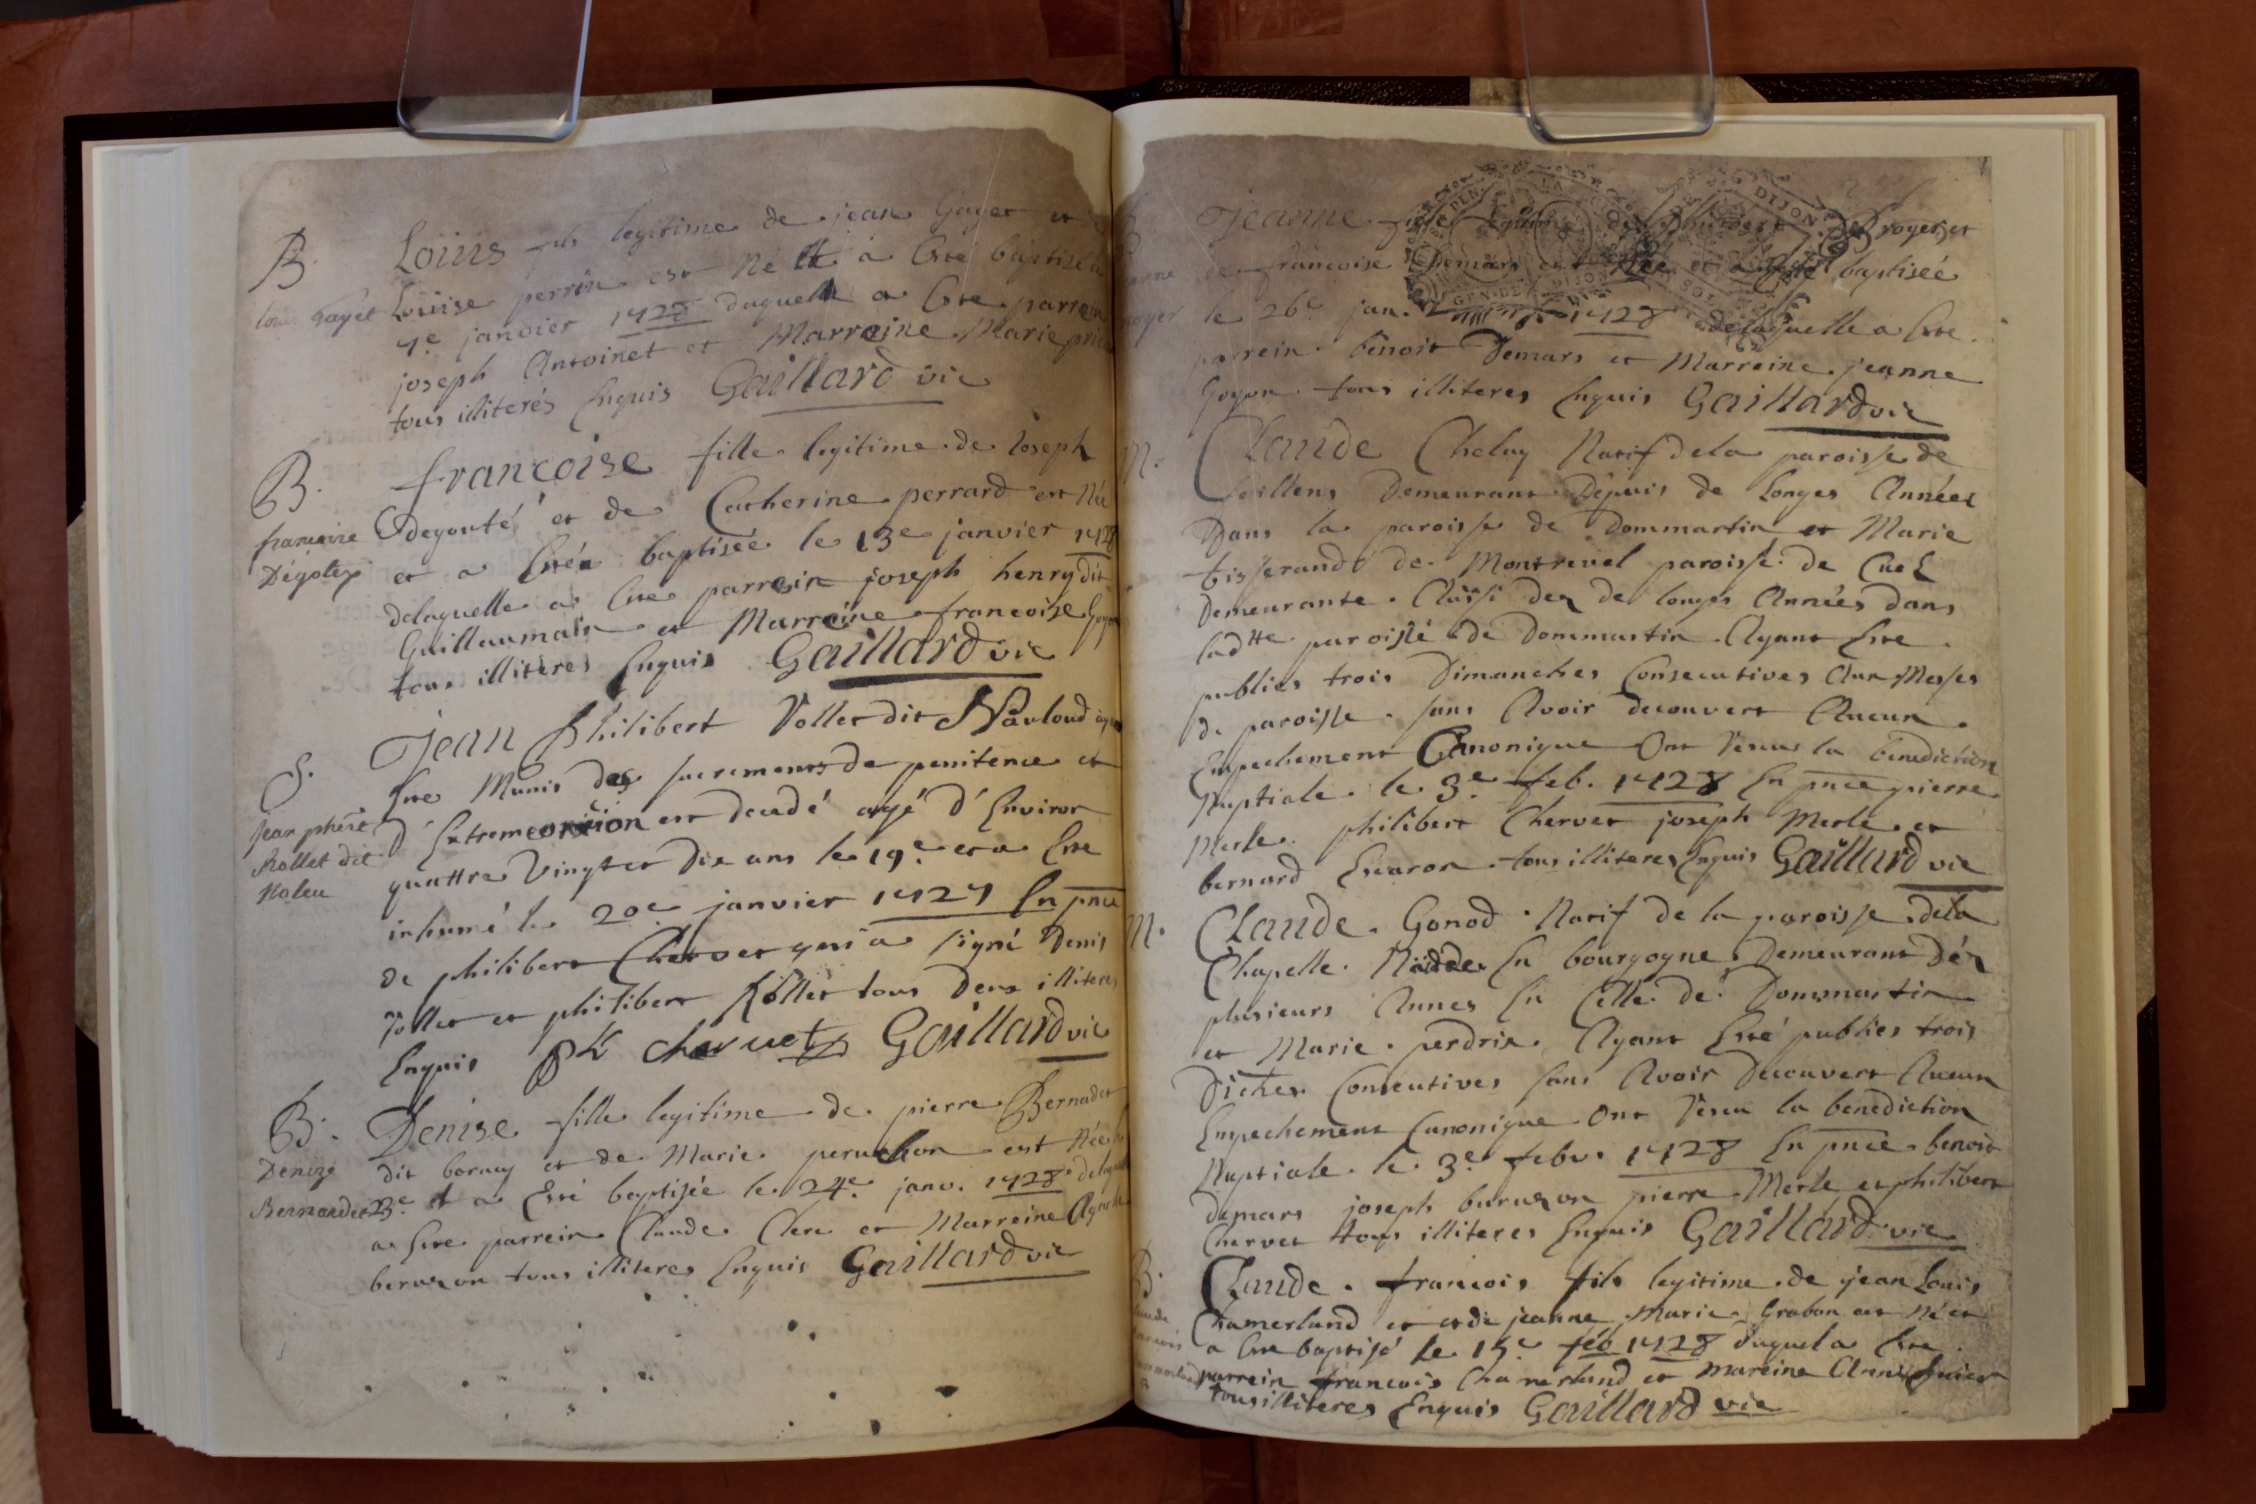 B.
Louis Gayet
Loüis fils legitime de jean Gayet et
Loüise perrin est Né et a Este baptisé
7.e janvier 1728 duquell a Este parrein
joseph Antoinet et Marreine Marie
tous illiterés Enquis Gaillard vic
B.
francoise
Dégotey
francoise fille legitime de Joseph
degouté et de Catherine perrard est Née
et a Esteé baptisée le 13e janvier 1728
delaquelle a Este parrein joseph henry dit
Guillaumair et Marreine francoise
tous illiteres Enquis Gaillard vic
S.
jean phert
Rollet dit
Noleu
Jean philibert Vollet dit
Este Munis des sacrements de penitence et
d'Extremeonction est decedé agé d'Environ
quattre Vingtet Dix ans le 19.e et a Este
inhumé le 20e janvier 1727 En pnce
de philibert Chervet qui a signé Denis
Vollet et philibert Rollet tous Deux illiteres
Enquis ph chervet Gaillard vic
B.
Denize
Bernardet
Denise fille legitime de pierre Bernadet
dit bornay et de Marie peruchon est Née
23e et a Esté baptizée le 24e janv. 1728
a Este parrein Claude Clere et Marreine
beruzon tous illiteres Enquis Gaillard vic
Jeanne fille legitime de Broyer et
francoise Demars est Née et a Esté baptiseé
le 26e jan. 1728 delaquelle a Este
parrein benoit Demars et Marreine jeanne
Goyon tous illiteres Enquis Gaillard vic
M.
Claude Chelay Natif de la paroisse de
Demeurant Depuis de Longes Années
Dans la paroisse de Dommartin et Marie
tisserand de Montrevel paroisse de Cuet
Demeurante Aussi dez de longes Années dans
ladtte paroisse de Dommartin Ayant Este
publies trois Dimanches Consecutives Aux Messes
de paroisse sans Avoir decouvert Aucun
Empechement Canonique Ont Receus la benediction
Nuptiale le 3.e feb. 1728 En pnce pierre
Merle philibert Chervet joseph Merle et
bernard Escaron tous illiteres Enquis Gaillard vic
M.
Claude Gonod Natif de la paroisse dela
Chapelle Naudde En bourgogne Demeurant Déz
plusieurs Annes En Celle de Dommartin
et Marie perdrix Ayant Esté publies trois
Diches Consecutives sans Avoir Decouvert Aucun
Empechement Canonique Ont Receu la benediction
Nuptiale le 3e febv. 1728 En pnce benoit
demars joseph buruzon pierre Merle et philibert
Chervet tous illiteres Enquis Gaillard vic
B.
Claude francois fils legitime de jean Louis
Chamerland et et de jeanne Marie Grabon est Né et
a Este baptisé le 15e féb 1728 duquel a Este
parrein francois Chamerland et mareine
tous illiteres Enquis Gaillard vic